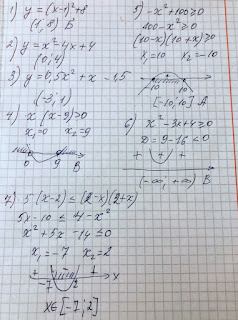 1) y = (x-1)²+8
(1; 8) B
2) y = x²-4x+4
(0; 4)
3) y = 0,5x²+x-1,5
(-3; 1)
4) x (x-9)>0
x₁=0 x₂=9
0 9 B
5) -x²+100≥0
100-x²≥0
(10-x)(10+x)≥0
x₁=10 x₂=-10
-10 10
[-10; 10] A
6) x²-3x+4≥0
D=9-16<0
+ +
(-∞; +∞) B
7) 5(x-2) ≤ (2-x)(2+x)
5x-10 ≤ 4-x²
x²+5x-14≤0
x₁=-7 x₂=2
+ - + x
-7 2
x∈[-7; 2]